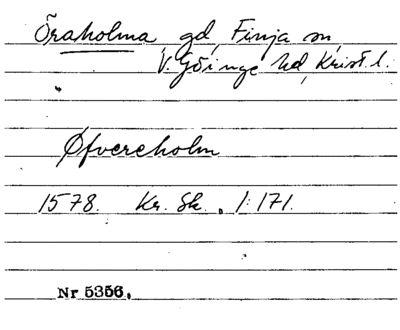 Öraholma, gd, Finja sn,
V. Göinge hd, Krist. l.
Øfvereholm
1578. Kr. Sk. 1:171.
Nr 5356.